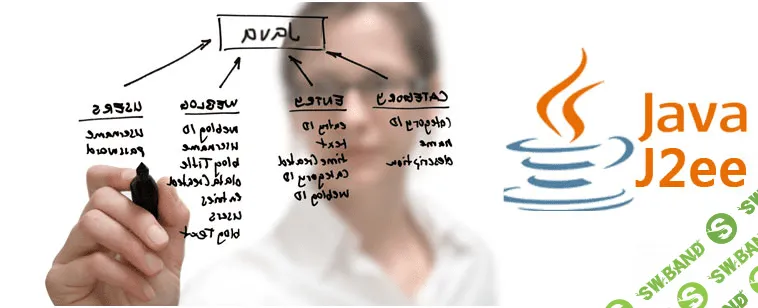 Java
USERS
Username
password
WEBLOG
weblog ID
username
blog Title
dataCreated
Entries
users
blog Text
ENTRY
entry ID
text
timeCreated
category ID
weblog ID
CATEGORY
category ID
name
description
Java
J2ee
SW.BAND
SW.BAND